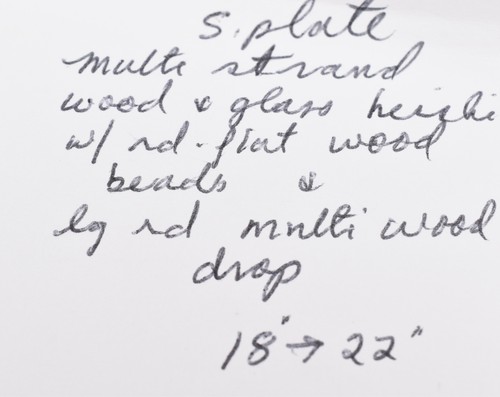 s. plate
multi strand
wood & glass heishi
w/ rd. flat wood
beads &
lg rd multi wood
drop
18" → 22"